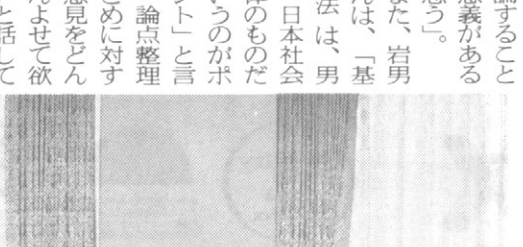 論すること
意義がある
思う」。
また、岩男
んは、「基
法 は、男
日本社会
体のものだ
いうのがポ
ント」と言
論点整理
とめに対す
意見をどん
んよせて欲
と話して